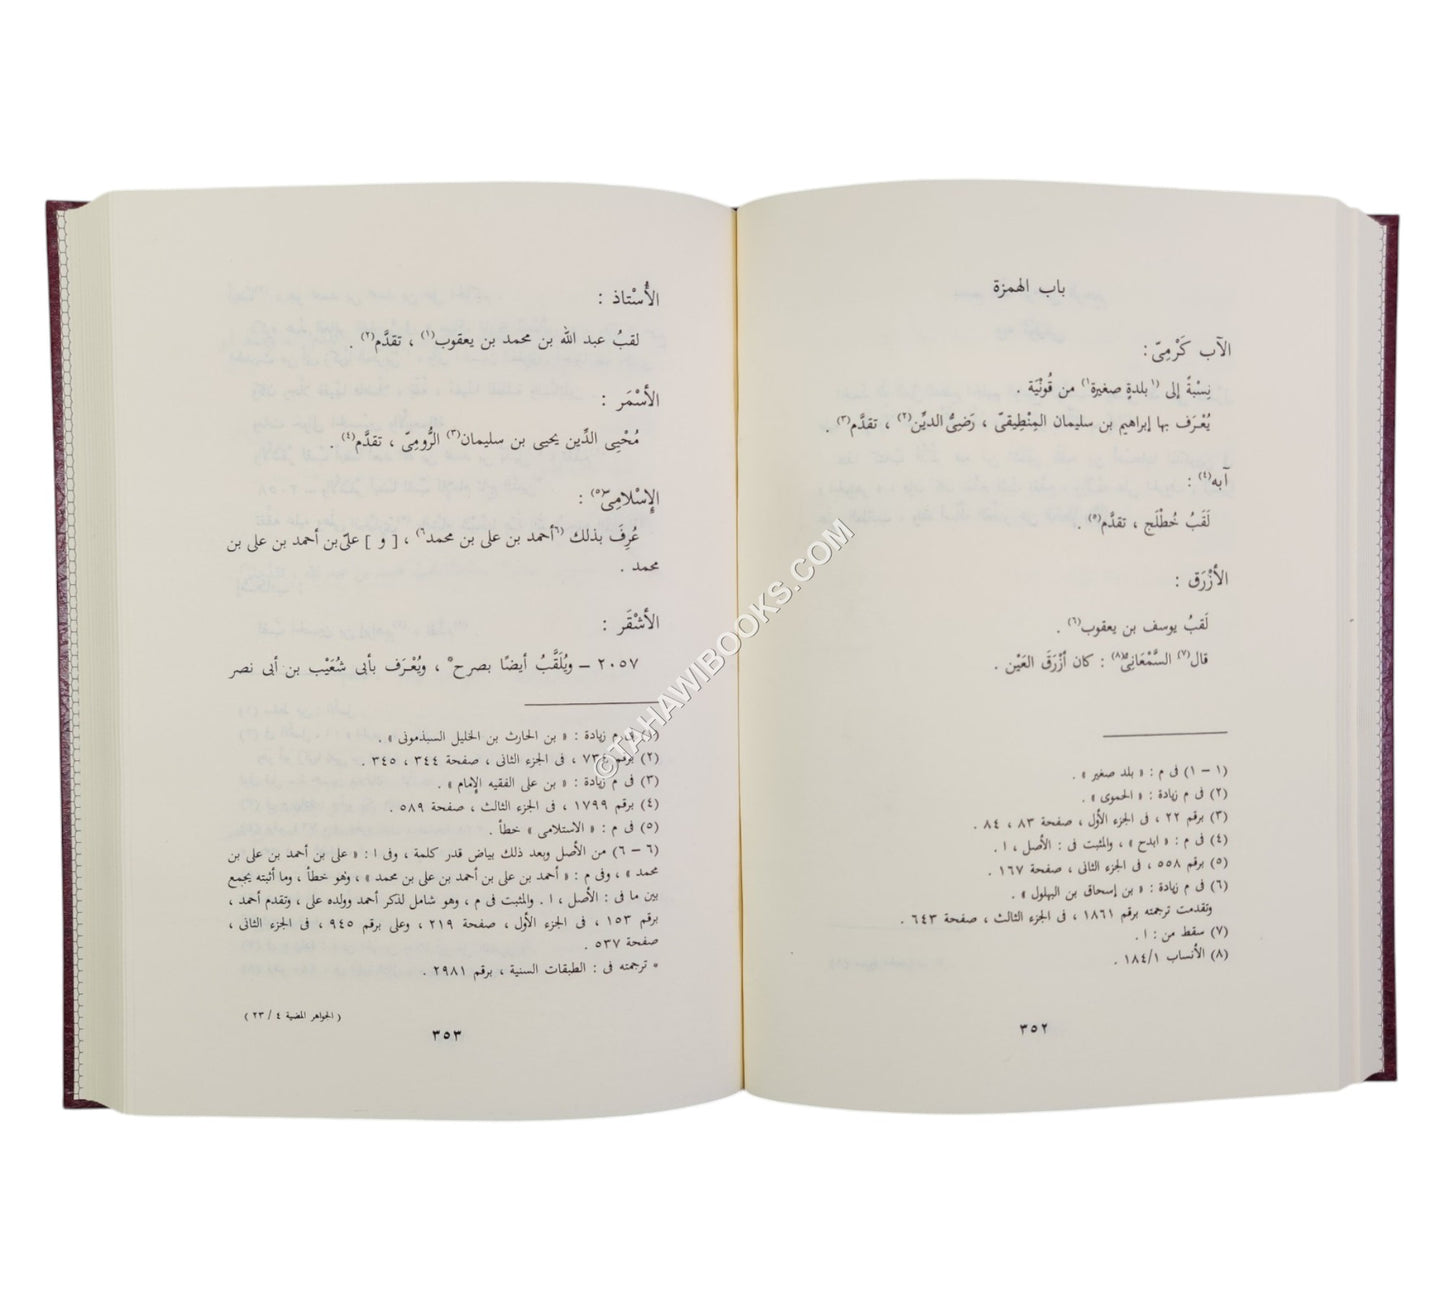 باب الهمزة
الآب كَرْمِىّ :
نِسْبةً إلى (١ بلدةٍ صغيرة١) من قُونْيَة .
يُعْرَف بها إبراهيم بن سليمان المِنْطِيقى ، رَضِىُّ الديِّن(٢) ، تقدَّم(٣) .
آبه(٤) :
لَقَبُ خُطْلَج ، تقدَّم(٥) .
الأزْرَق :
لَقبُ يوسف بن يعقوب(٦) .
قال(٧) السَّمْعَانِىّ(٨) : كان أزْرَقَ العَيْن .
(١ – ١) فى م : « بلد صغير » .
(٢) فى م زيادة : « الحموى » .
(٣) برقم ٢٢ ، فى الجزء الأول ، صفحة ٨٣ ، ٨٤ .
(٤) فى م : « ابدح » ، والمثبت فى : الأصل ، ا .
(٥) برقم ٥٥٨ ، فى الجزء الثانى ، صفحة ١٦٧ .
(٦) فى م زيادة : « بن إسحاق بن البهلول » .
وتقدمت ترجمته برقم ١٨٦١ ، فى الجزء الثالث ، صفحة ٦٤٣ .
(٧) سقط من : ا .
(٨) الأنساب ١٨٤/١ .
٣٥٢
الأُسْتاذ :
لقبُ عبد الله بن محمد بن يعقوب(١) ، تقدَّم(٢) .
الأسْمَر :
مُحْيِى الدِّين يحيى بن سليمان(٣) الرُّومِىّ ، تقدَّم(٤) .
الإسْلامِىّ(٥) :
عُرِفَ بذلك (٦أحمد بن على بن محمد٦) ، [ و ] علىّ بن أحمد بن على بن
محمد .
الأشْقَر :
٢٠٥٧ – ويُلَقَّبُ أيضًا بصرح* ، ويُعْرَف بأبى شُعَيْب بن أبى نصر
(١) فى م زيادة : « بن الحارث بن الخليل السبذمونى » .
(٢) برقم ٧٣٤ ، فى الجزء الثانى ، صفحة ٣٤٤ ، ٣٤٥ .
(٣) فى م زيادة : « بن على الفقيه الإمام » .
(٤) برقم ١٧٩٩ ، فى الجزء الثالث ، صفحة ٥٨٩ .
(٥) فى م : « الاستلامى » خطأ .
(٦ – ٦) من الأصل وبعد ذلك بياض قدر كلمة ، وفى ا : « على بن أحمد بن على بن
محمد » ، وفى م : « أحمد بن على بن أحمد بن على بن محمد » ، وهو خطأ ، وما أثبته يجمع
بين ما فى : الأصل ، ا . والمثبت فى م ، وهو شامل لذكر أحمد وولده على ، وتقدم أحمد ،
برقم ١٥٣ ، فى الجزء الأول ، صفحة ٢١٩ ، وعلى برقم ٩٤٥ ، فى الجزء الثانى ،
صفحة ٥٣٧ .
* ترجمته فى : الطبقات السنية ، برقم ٢٩٨١ .
( الجواهر المضية ٤ / ٢٣ )
٣٥٣
©TAHAWIBOOKS.COM